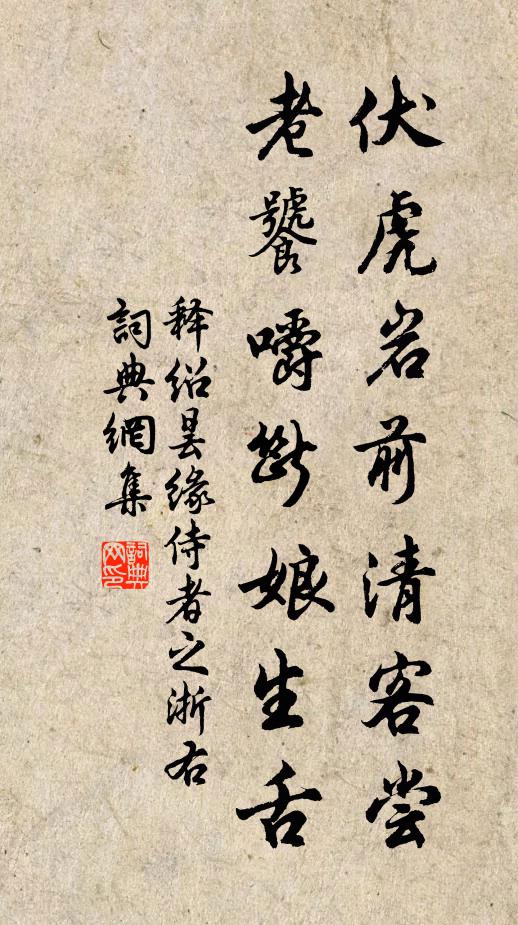 伏虎岩前清客尝
老饕嚼断娘生舌
释绍昙缘侍者之浙右
詞典網集
詞典网印